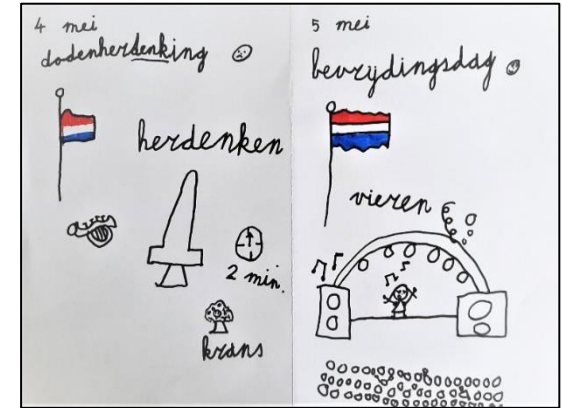 4 mei
dodenherdenking
herdenken
2 min.
krans
5 mei
bevrydingsdag
vieren